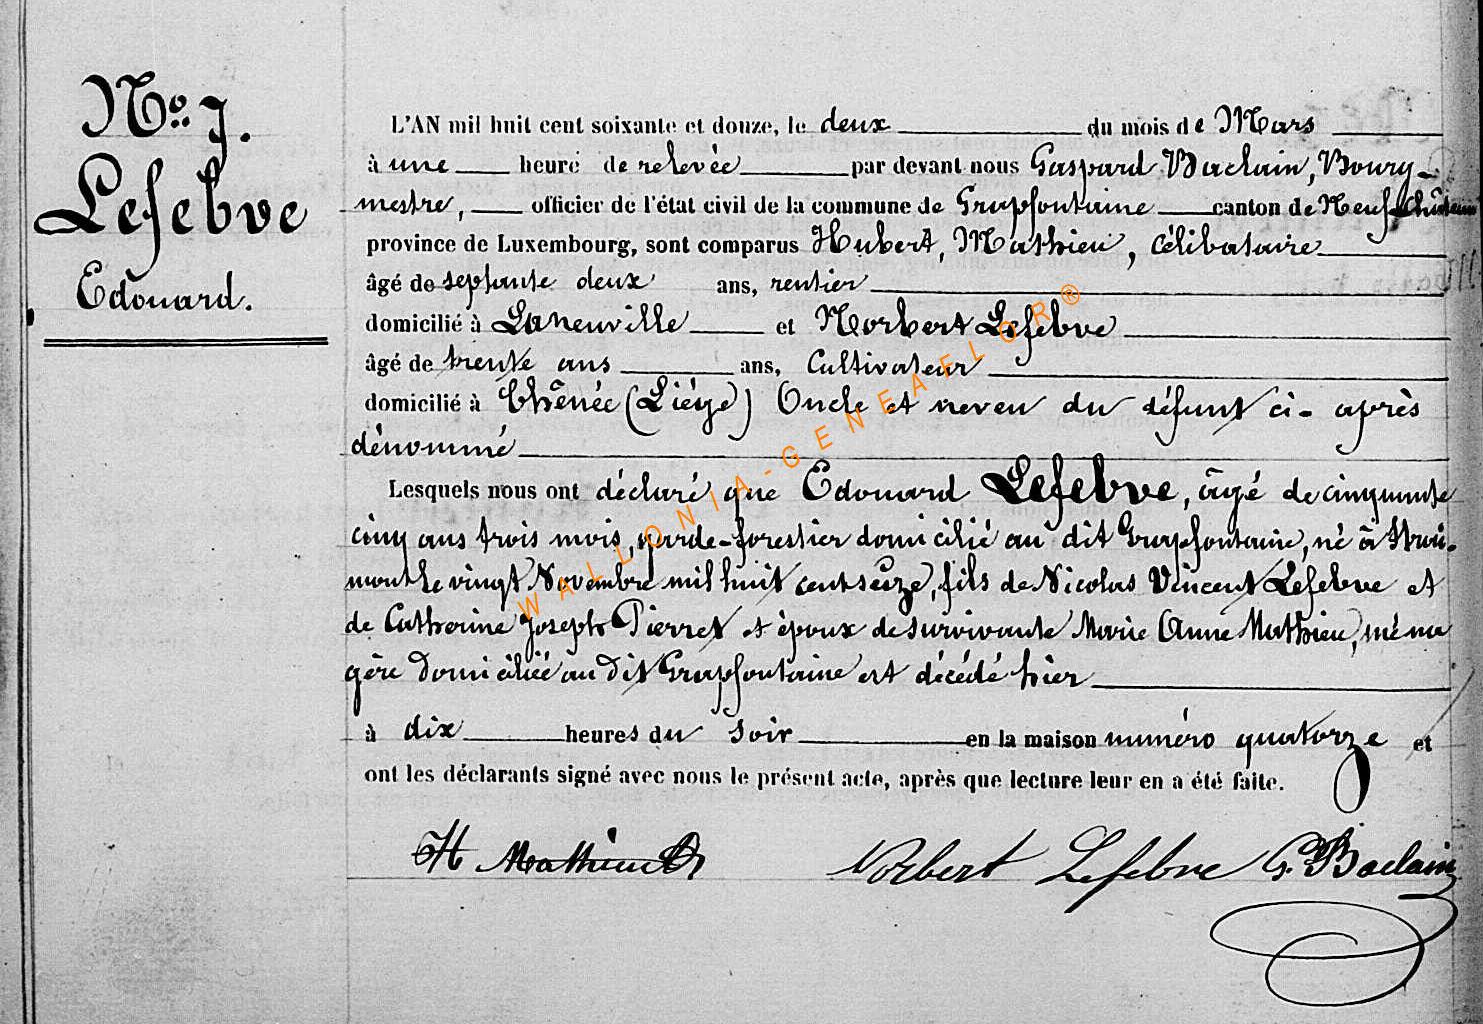 No. 7.
Lefebvre
Edouard.
L'AN mil huit cent soixante et douze, le deux du mois de Mars
à une heure de relevée par devant nous Gaspard Baclain, Bourg-
mestre, officier de l'état civil de la commune de Grapfontaine canton de Neufchâteau
province de Luxembourg, sont comparus Hubert, Mathieu, célibataire
âgé de septante deux ans, rentier
domicilié à Laneuville et Norbert Lefebve
âgé de trente ans ans, Cultivateur
domicilié à Chênée (Liége) Oncle et neveu du défunt ci-après
dénommé
Lesquels nous ont déclaré que Edouard Lefebve, âgé de cinquante
cinq ans trois mois, garde-forestier domicilié au dit Grapfontaine, né à Strai-
mont le vingt Novembre mil huit cent seize, fils de Nicolas Vincent Lefebve et
de Catherine Joseph Pierret et époux de survivante Marie Anne Mathieu, ména
gère domiciliée au dit Grapfontaine est décédé hier
à dix heures du soir en la maison numéro quatorze et
ont les déclarants signé avec nous le présent acte, après que lecture leur en a été faite.
H Mathieu Norbert Lefebve G. Baclain
WALLONIA-GENEAELOR®